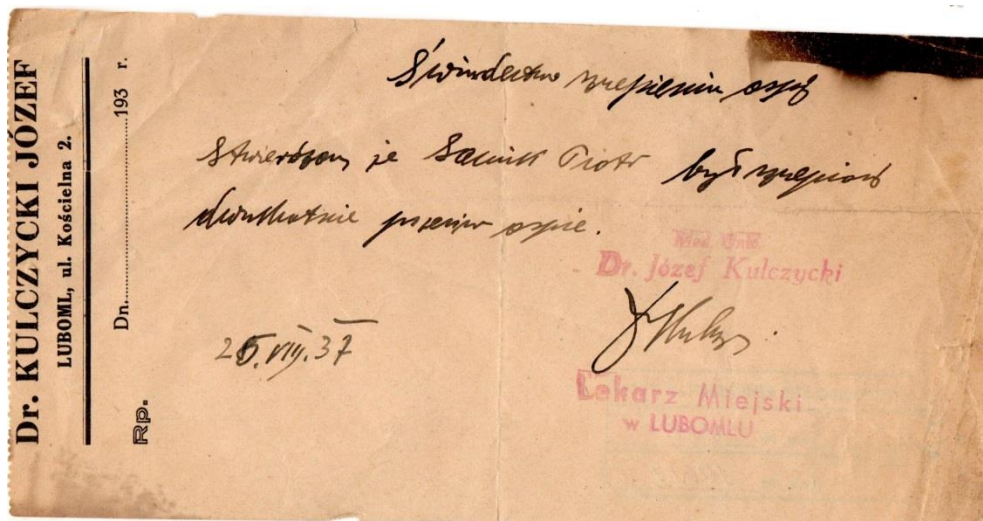 Dr. KULCZYCKI JÓZEF
LUBOML, ul. Kościelna 2.
Dn. 193 r.
Rp.
Świadectwo szczepienia ospy
Stwierdzam, że Piotr był szczepiony
dwukrotnie przeciw ospie.
Med. Univ.
Dr. Józef Kulczycki
25.VIII.37
Lekarz Miejski
w LUBOMLU